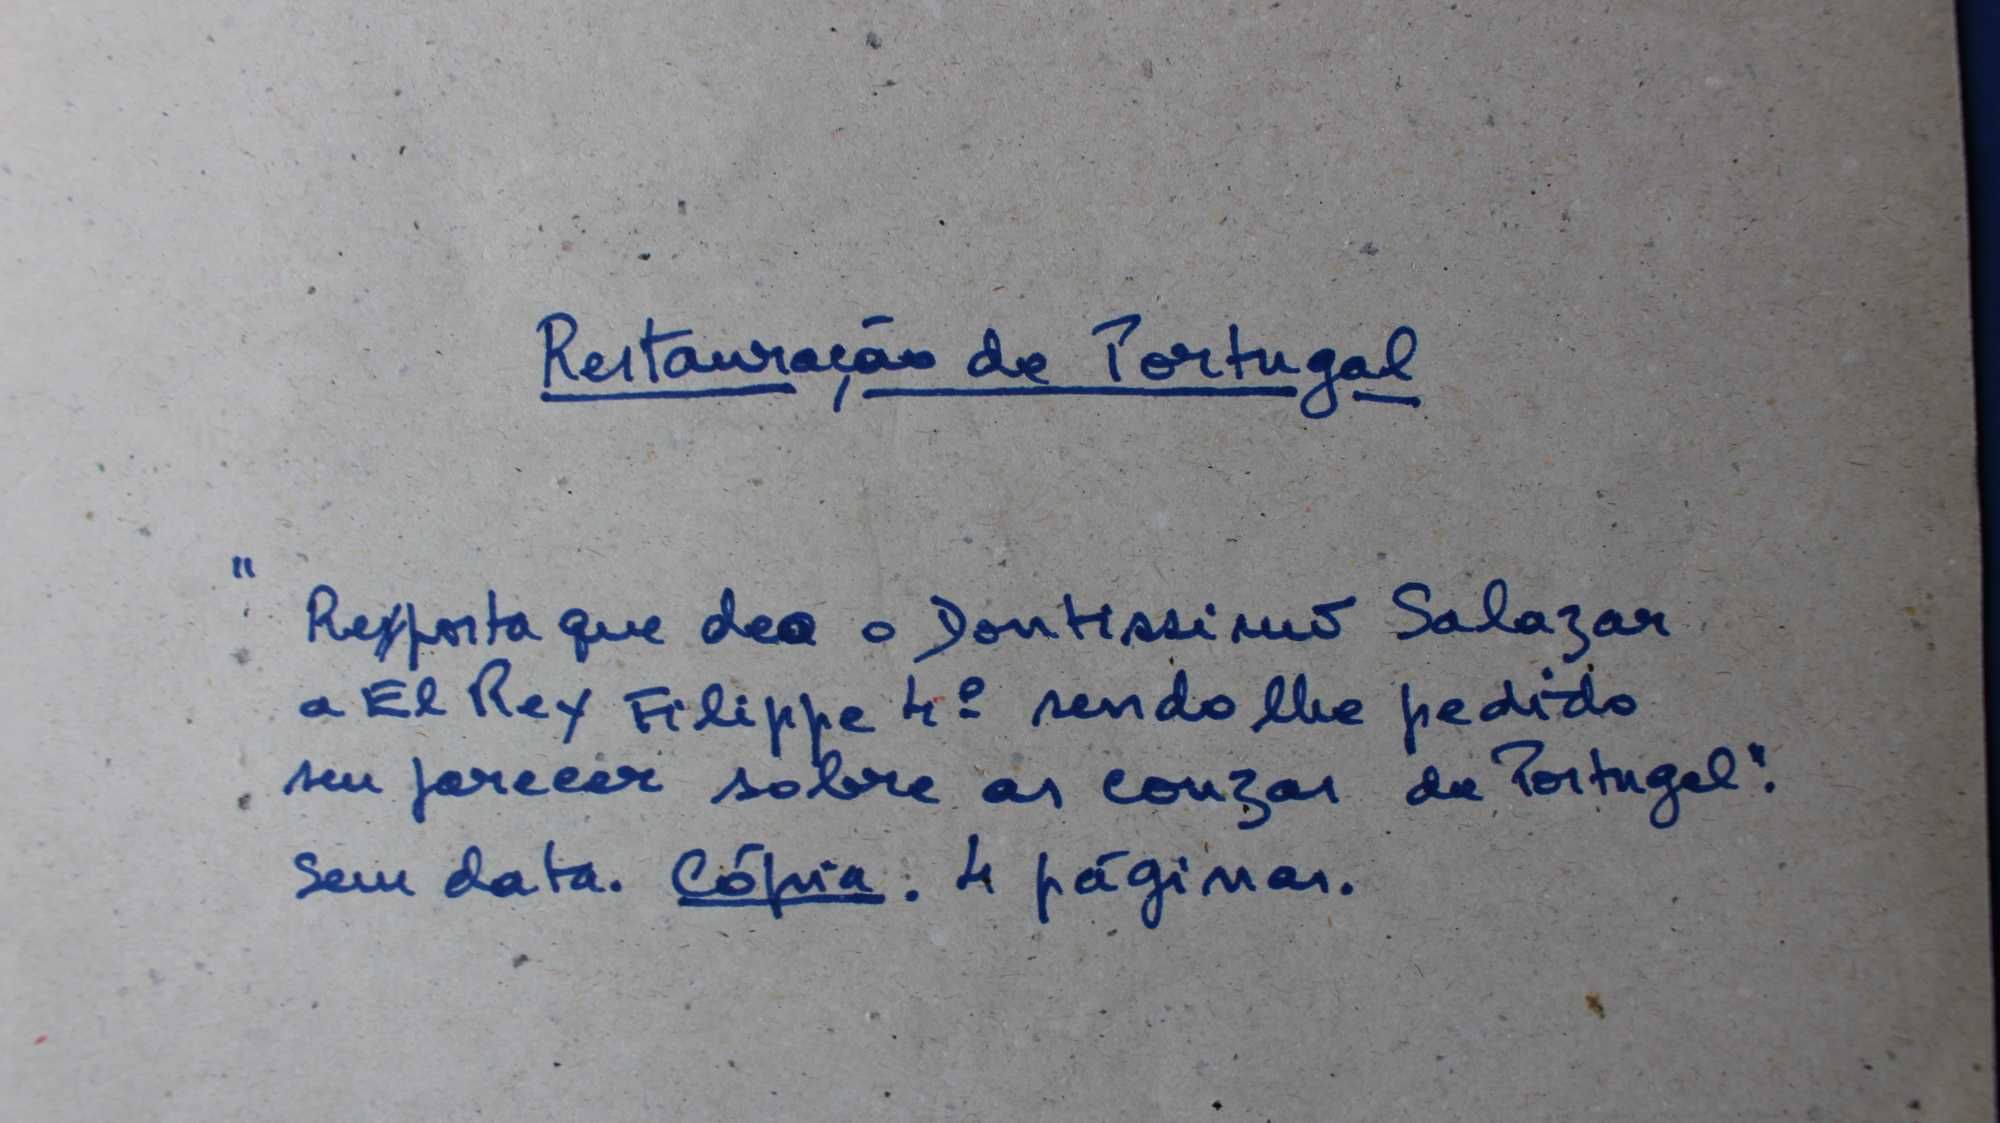 Restauração de Portugal
"Resposta que deo o Dontissimo Salazar
a El Rey Filippe 4º sendo lhe pedido
seu parecer sobre as couzas de Portugal".
Sem data. Cópia. 4 páginas.